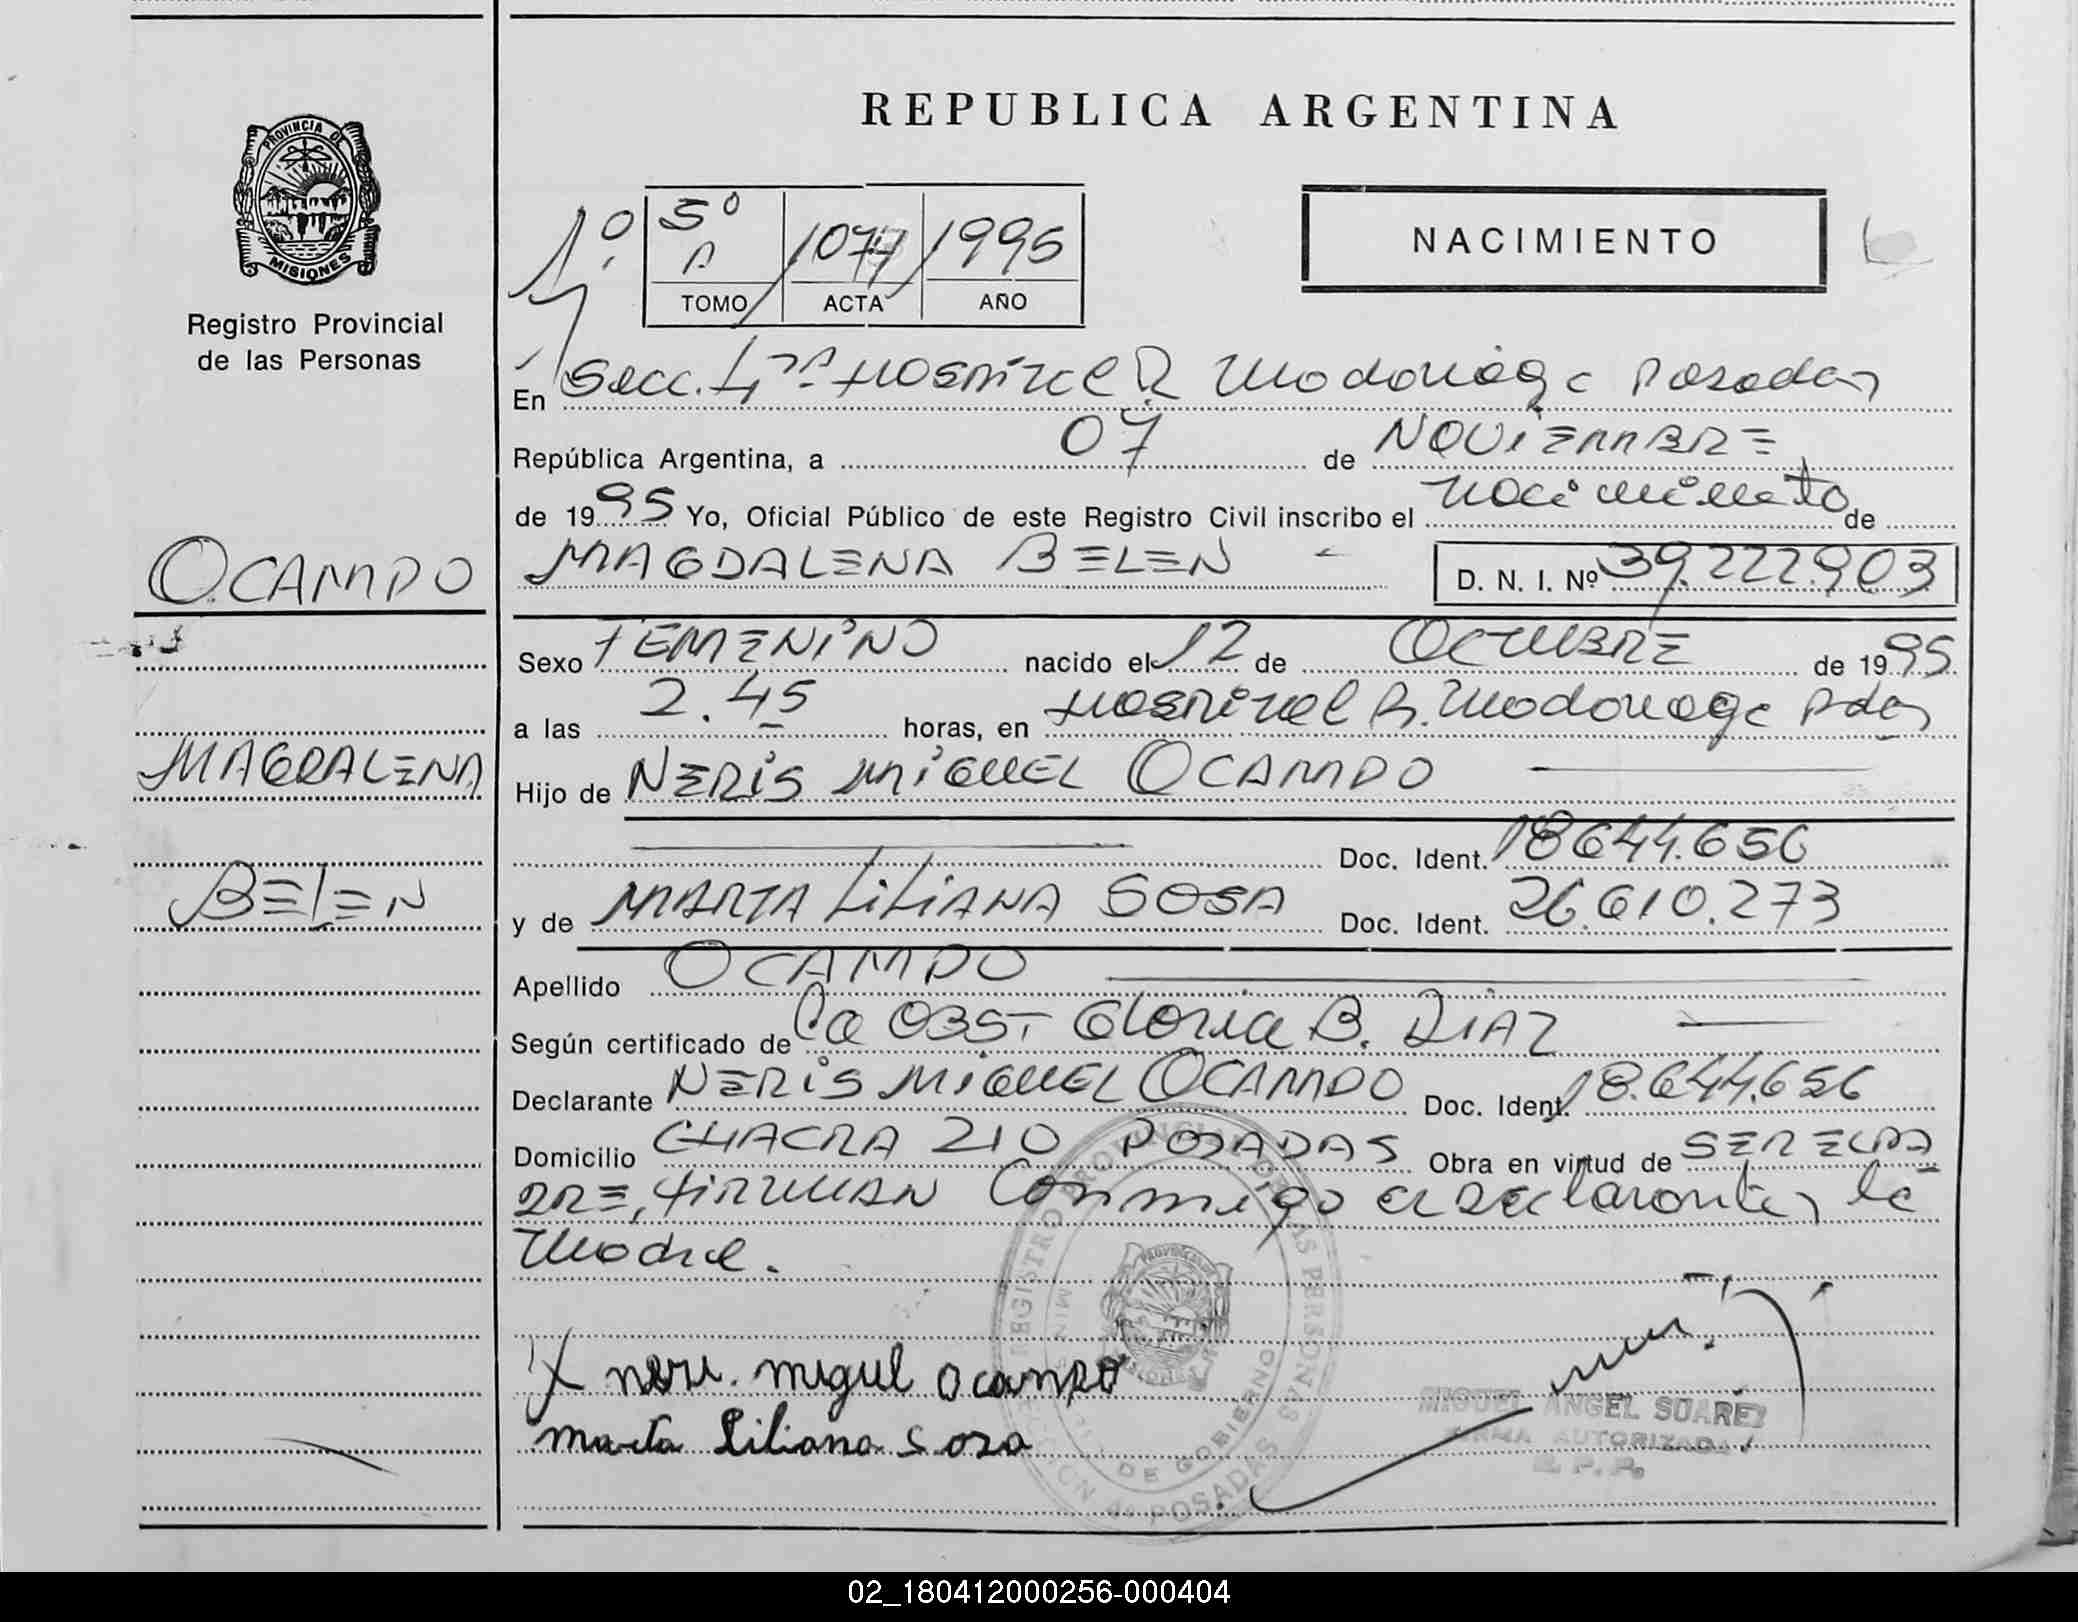 REPUBLICA ARGENTINA
PROVINCIA DE
MISIONES
Registro Provincial
de las Personas
1º 5º A / 1077 / 1995
TOMO ACTA AÑO
NACIMIENTO
En Secc. 4ta Hospital R Madariaga Posadas
República Argentina, a 07 de NOVIEMBRE
de 1995 Yo, Oficial Público de este Registro Civil inscribo el nacimiento de
MAGDALENA BELEN - D. N. I. Nº 39.222.903
OCAMPO
MAGDALENA
BELEN
Sexo FEMENINO nacido el 12 de OCTUBRE de 1995
a las 2.45 horas, en Hospital R. Madariaga Pdas
Hijo de NERIS MIGUEL OCAMPO
Doc. Ident. 18.644.656
y de MARTA LILIANA SOSA Doc. Ident. 26.610.273
Apellido OCAMPO
Según certificado de La OBST Gloria B. DIAZ
Declarante NERIS MIGUEL OCAMPO Doc. Ident. 18.644.656
Domicilio CHACRA 210 POSADAS Obra en virtud de SER EL PA
DRE, FIRMAN Conmigo el declarante y la
Madre.
X neri. miguel Ocampo
marta Liliana Sosa
REGISTRO PROVINCIAL DE LAS PERSONAS
DE GOBIERNO
POSADAS
MIGUEL ANGEL SUAREZ
FIRMA AUTORIZADA
R. P. P.
02_180412000256-000404